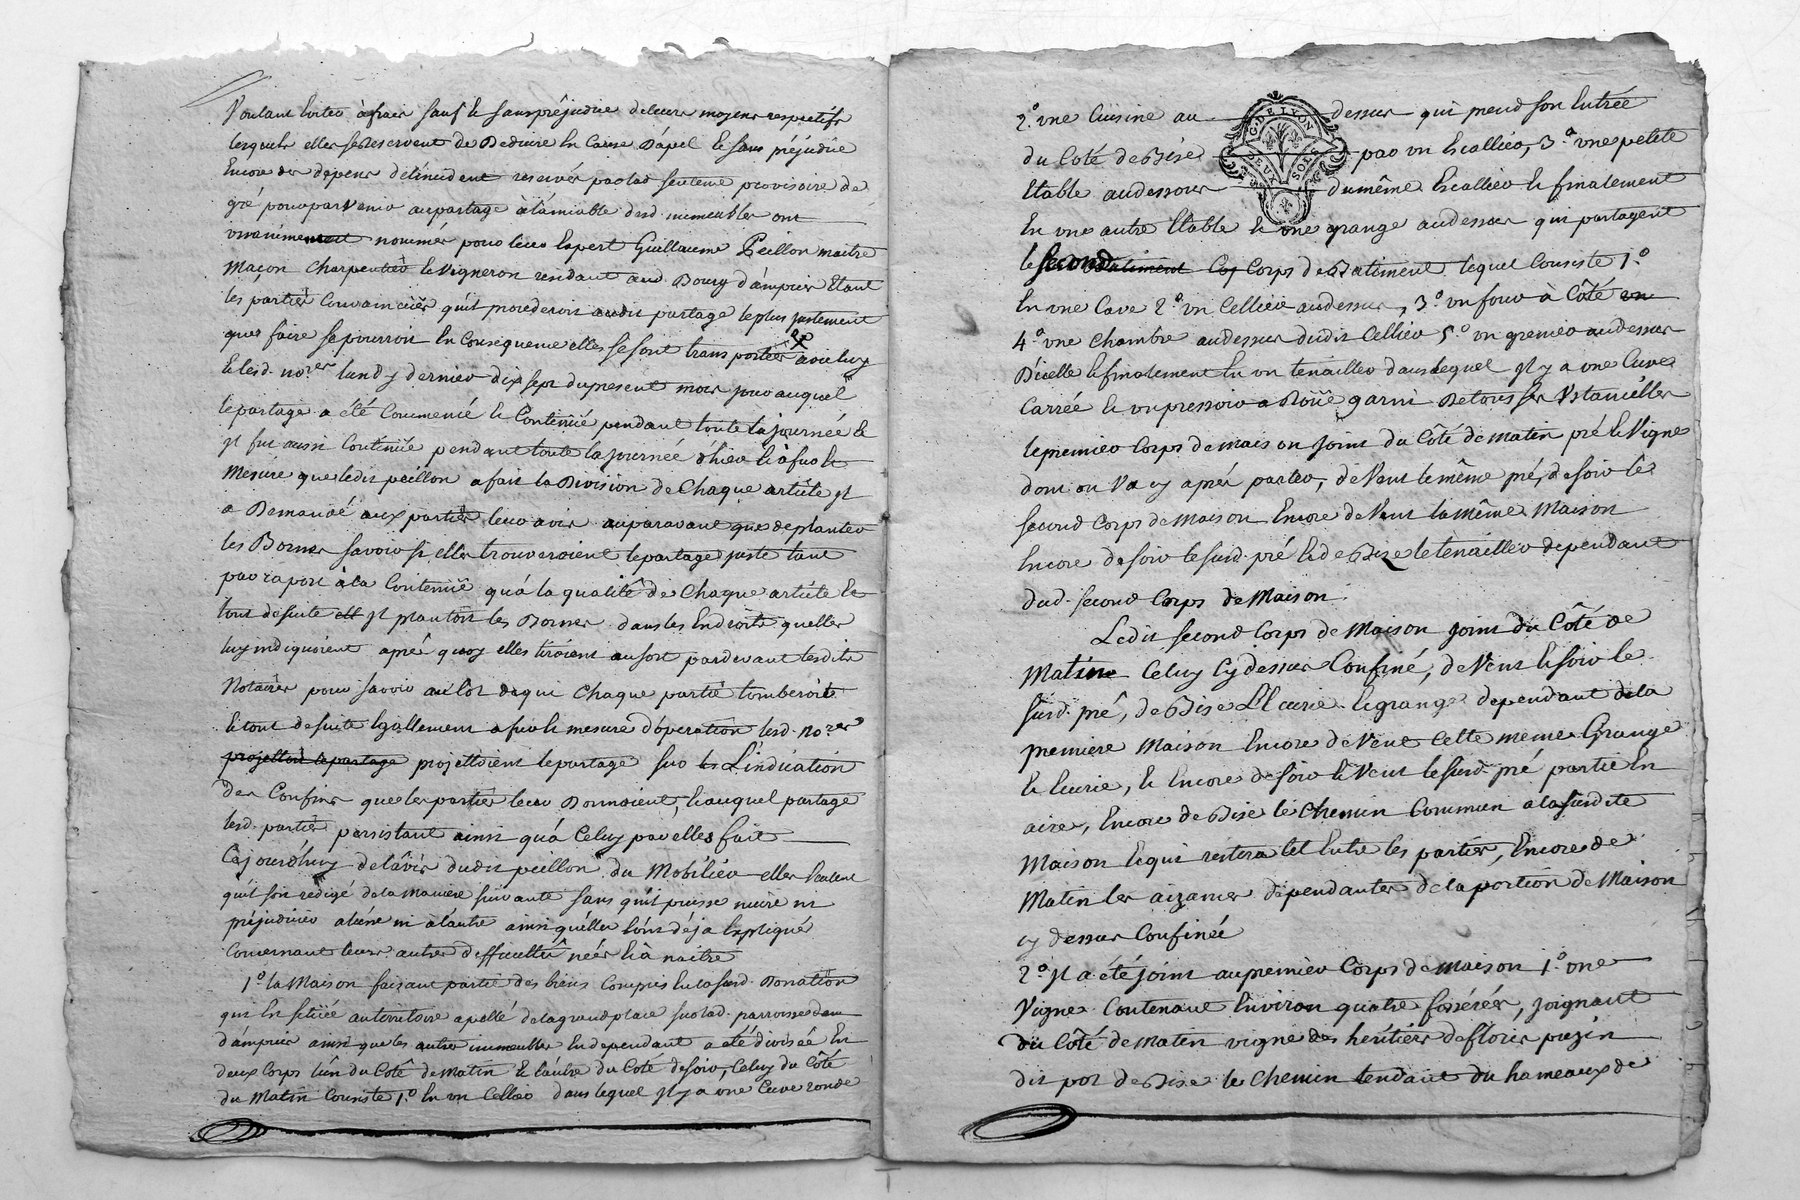 Voulant Eviter à frais sauf et sans préjudice de leurs moyens respectifs
lesquels elles se reservent de Deduire En Cause D'apel et sans préjudice
Encore des dépens de l'incident reservés par lad. sentence provisoire de
gré pour parvenir au partage à l'amiable desd. immeubles ont
unanimement nommés pour leur Expert Guillaume Peillon maitre
Maçon Charpentier et Vigneron residant aud. Bourg d'ampuis Etant
les parties Convaincües qu'il procederoit audit partage le plus justement
que faire se pourroit En Consequence elles se sont transportées avec luy
Et lesd. no.res lundy dernier dix sept du present mois jour auquel
le partage a été Commencé et Continüé pendant toute la journée et
Il fut aussi Continüé pendant toute la journée d'hier et à fur et
Mesure que ledit peillon a fait la Division de Chaque article Il
a Demandé aux parties leur avis auparavant que de planter
les Bornes savoir si elles trouveroient le partage juste tant
par raport à la Contenüe qu'à la qualité de Chaque article Et
tout de suite Il plantoit les Bornes dans les Endroits quelles
luy indiquoient aprés quoy elles tiroient au sort pardevant lesdits
Notaires pour savoir au lot de qui Chaque partie tomberoit
Et tout de suite Egallement a fur et mesure d'operation lesd. no.res
projettoit le partage projettoient le partage sur les L'indication
des Confins que les parties leur Donnoient, Et auquel partage
lesd. parties persistant ainsi qu'à Celuy par elles fait
Cejourd'huy de l'avis dudit peillon du Mobilier elles Veulent
qu'il soit redigé de la Maniere suivante sans qu'il puisse nuire ni
préjudicier a l'une ni à l'autre ainsi qu'elles l'ont déja Expliqué
Concernant leurs autres difficultés nées et à naitre
1.° la Maison faisant partie des biens Compris En la susd. Donation
qui Est sitüée au territoire apellé de la grand place sur lad. parroisse
d'ampuis ainsi que les autres immeubles En dependant a été divisée En
deux Corps l'un du Coté de Matin Et l'autre du Coté de soir, Celuy du Côté
du Matin Consiste 1.° En un Cellier dans lequel Il y a une Cuve ronde
2.° une Cuisine au dessus qui prend son Entrée
du Coté de Bise par un Escallier, 3.° une petite
Etable au dessous du même Escallier Et finalement
En une autre Etable Et une grange au dessus qui partagent
le second Batiment Corps de Batiment lequel Consiste 1.°
En une Cave 2.° un Cellier au dessus, 3.° un four à Côté
4.° une Chambre au dessus dudit Cellier 5.° un grenier au dessus
D'icelle Et finalement En un tenaillier dans lequel Il y a une Cuve
Carrée Et un pressoir a Roüe garni De tous ses Ustancilles
le premier Corps de maison Joint du Côté de matin pré Et Vigne
dont on Va cy aprés parler, de Vent le même pré, de soir le
second Corps de Maison Encore de Vent la même Maison
Encore de soir le susd. pré Et de Bize le tenaillier dependant
dud. second Corps de Maison.
Ledit second Corps de Maison Joint du Côté de
Matin Celuy Cy dessus Confiné, de Vent Et soir le
susd. pré, de Bise L'Ecurie Et grange dependant de la
premiere Maison Encore de Vent Cette meme Grange
Et Ecurie, Et Encore de soir Et Vent le susd. pré partie En
aire, Encore de Bise le Chemin Commun a la susdite
Maison Et qui restera tel Entre les parties, Encore de
Matin les aizances dependantes de la portion de Maison
cy dessus Confinée
2.° Il a été joint au premier Corps de Maison 1.° une
Vigne Contenant Environ quatre fosserées, joignant
du Côté de Matin vigne des héritiers de floris prezin
dit pot de Bise le Chemin tendant du hameaux de
G. DE LYON
DEUX SOLS